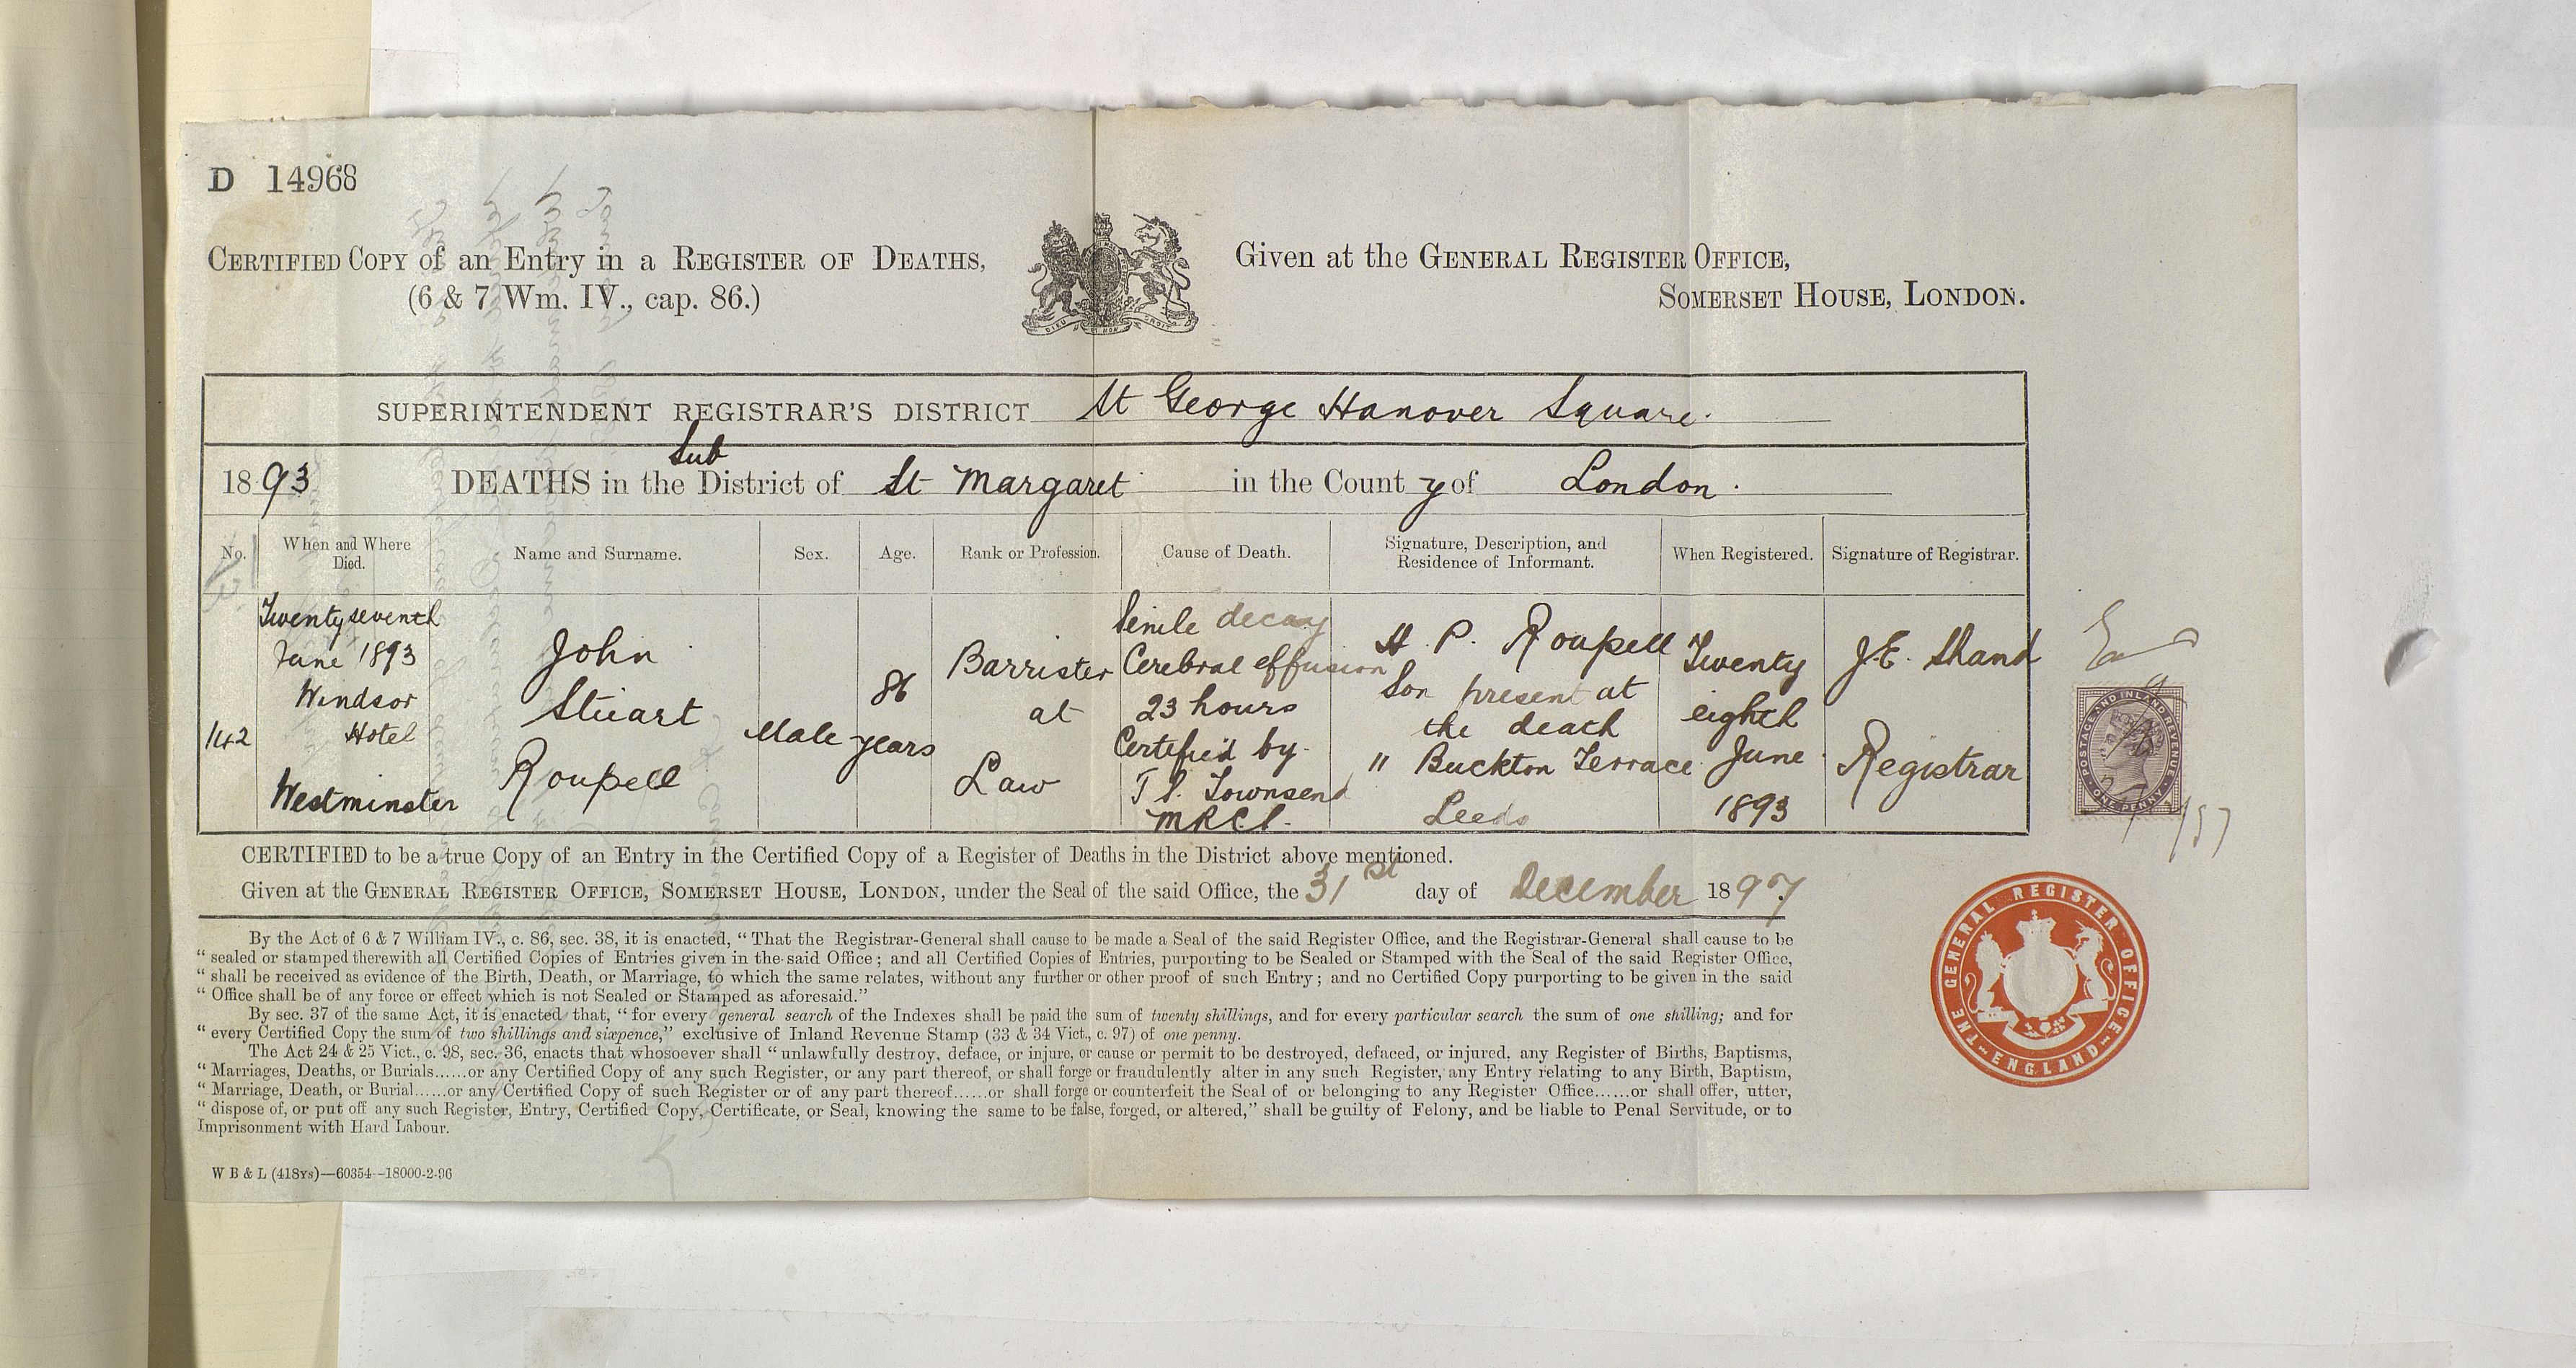 D 14968
CERTIFIED COPY of an Entry in a REGISTER OF DEATHS,
(6 & 7 Wm. IV., cap. 86.)
DIEU ET MON DROIT
Given at the GENERAL REGISTER OFFICE,
SOMERSET HOUSE, LONDON.
SUPERINTENDENT REGISTRAR'S DISTRICT St George Hanover Square.
Sub
1893 DEATHS in the District of St Margaret in the County of London.
No. When and Where Died. Name and Surname. Sex. Age. Rank or Profession. Cause of Death. Signature, Description, and Residence of Informant. When Registered. Signature of Registrar.
142
Twentyseventh
June 1893
Windsor
Hotel
Westminster
John
Stuart
Roupell
Male
86
years
Barrister
at
Law
Senile decay
Cerebral effusion
23 hours
Certified by
T S. Townsend
MRCS.
H. P. Roupell
Son present at
the death
11 Buckton Terrace
Leeds
Twenty
eighth
June
1893
J.E. Shand
Registrar
POSTAGE AND INLAND REVENUE
ONE PENNY
CERTIFIED to be a true Copy of an Entry in the Certified Copy of a Register of Deaths in the District above mentioned.
Given at the GENERAL REGISTER OFFICE, SOMERSET HOUSE, LONDON, under the Seal of the said Office, the 31st day of December 1897
THE GENERAL REGISTER OFFICE
ENGLAND
By the Act of 6 & 7 William IV., c. 86, sec. 38, it is enacted, "That the Registrar-General shall cause to be made a Seal of the said Register Office, and the Registrar-General shall cause to be
"sealed or stamped therewith all Certified Copies of Entries given in the said Office; and all Certified Copies of Entries, purporting to be Sealed or Stamped with the Seal of the said Register Office,
"shall be received as evidence of the Birth, Death, or Marriage, to which the same relates, without any further or other proof of such Entry; and no Certified Copy purporting to be given in the said
"Office shall be of any force or effect which is not Sealed or Stamped as aforesaid."
By sec. 37 of the same Act, it is enacted that, "for every general search of the Indexes shall be paid the sum of twenty shillings, and for every particular search the sum of one shilling; and for
"every Certified Copy the sum of two shillings and sixpence," exclusive of Inland Revenue Stamp (33 & 34 Vict., c. 97) of one penny.
The Act 24 & 25 Vict., c. 98, sec. 36, enacts that whosoever shall "unlawfully destroy, deface, or injure, or cause or permit to be destroyed, defaced, or injured, any Register of Births, Baptisms,
"Marriages, Deaths, or Burials......or any Certified Copy of any such Register, or any part thereof, or shall forge or fraudulently alter in any such Register, any Entry relating to any Birth, Baptism,
"Marriage, Death, or Burial......or any Certified Copy of such Register or of any part thereof......or shall forge or counterfeit the Seal of or belonging to any Register Office......or shall offer, utter,
"dispose of, or put off any such Register, Entry, Certified Copy, Certificate, or Seal, knowing the same to be false, forged, or altered," shall be guilty of Felony, and be liable to Penal Servitude, or to
Imprisonment with Hard Labour.
W B & L (418YS)—60354—18000-2-96